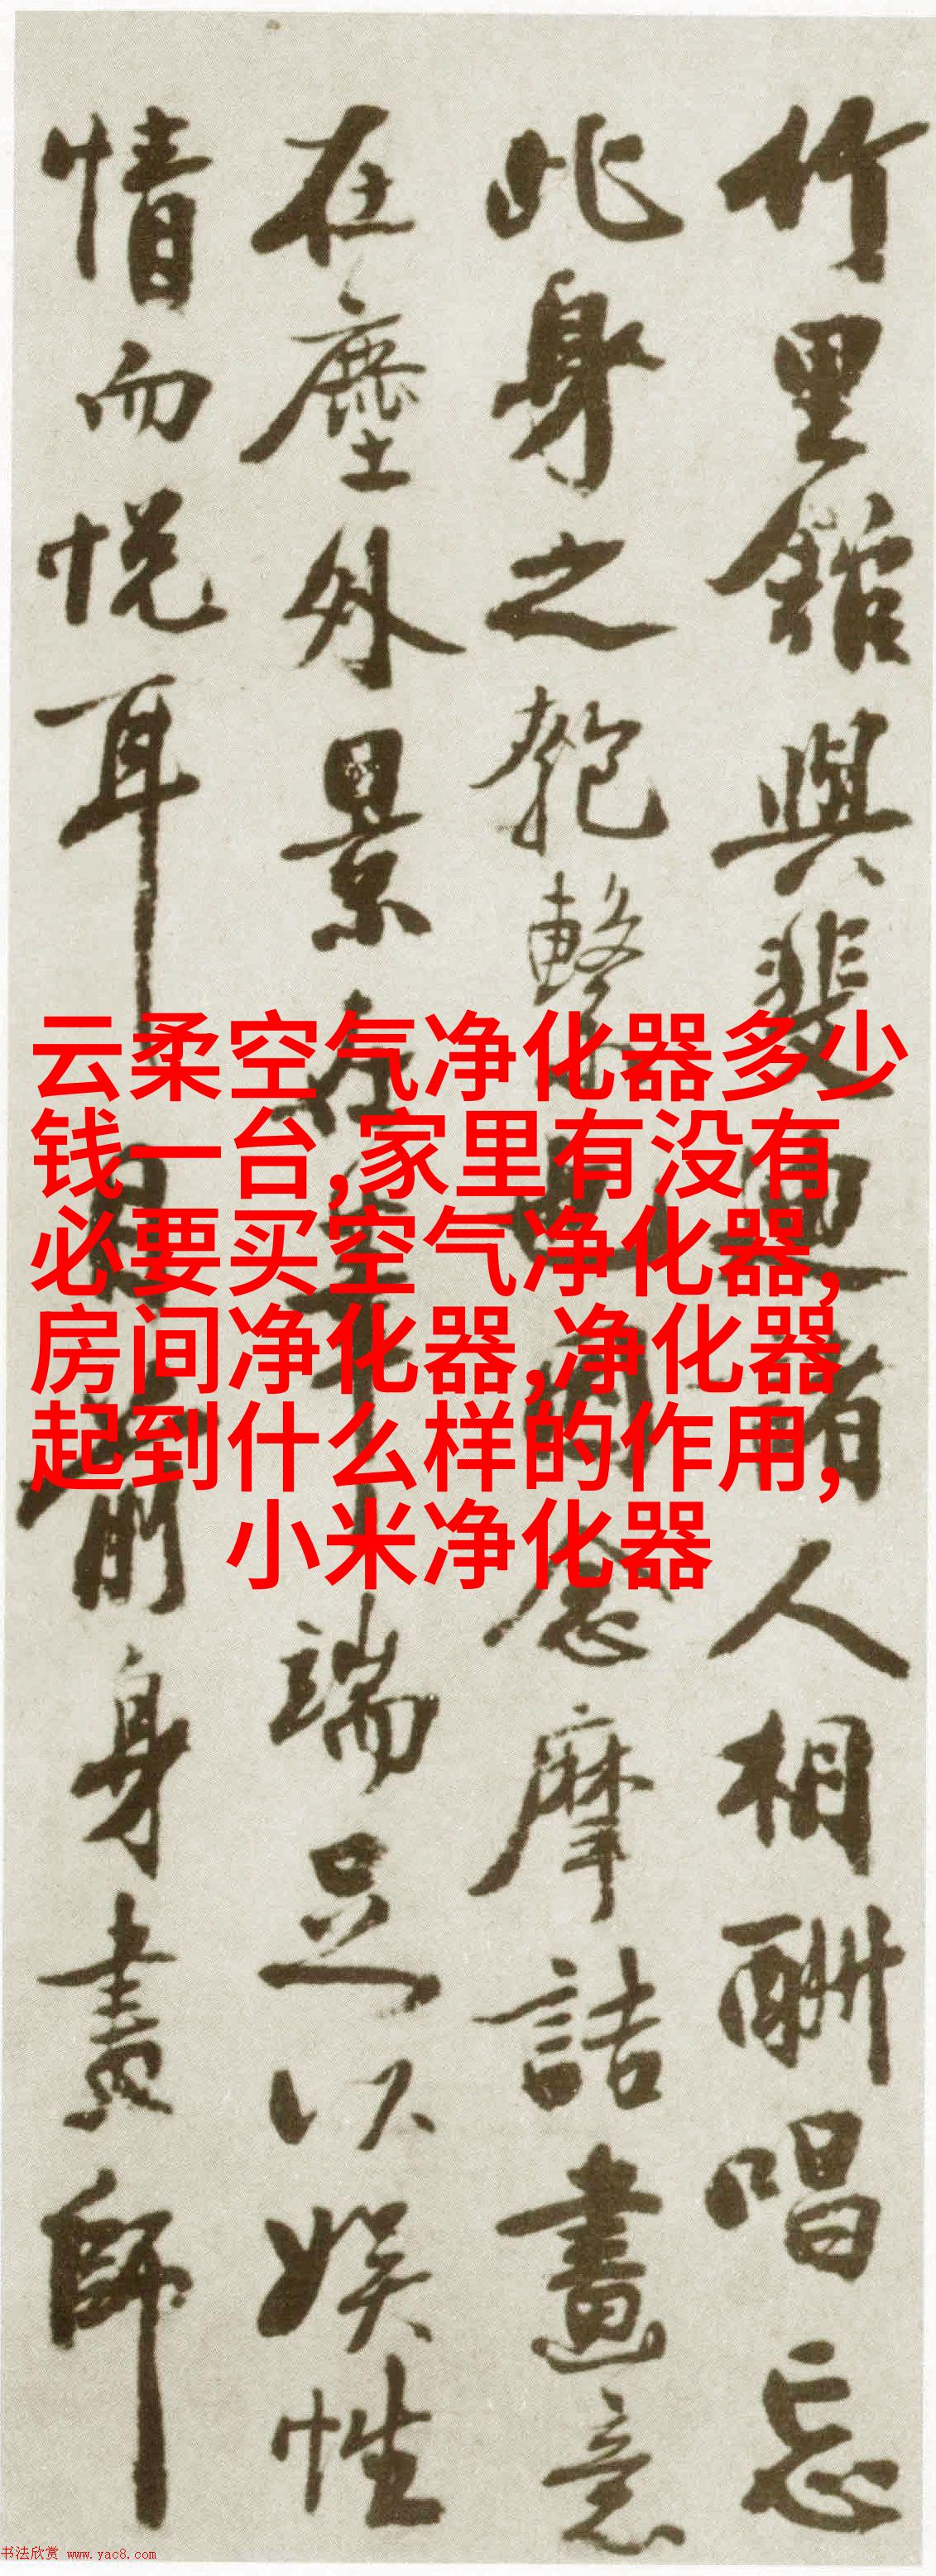 竹里館與裴迪諸人相酬唱忘
此身之匏繫也因念摩詰畫意
在塵外景在筆端足以娛性
情而悦耳目前身畫師
云柔空气净化器多少
钱一台,家里有没有
必要买空气净化器,
房间净化器,净化器
起到什么样的作用,
小米净化器
书法欣赏 www.yac8.com